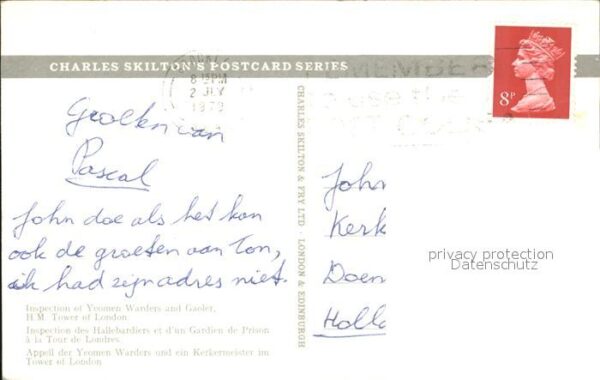 CHARLES SKILTON'S POSTCARD SERIES
8 15 PM
2 JLY
REMEMBER
to use the
POST CODE
8P
Groeten van
Pascal
John doe als het kan
ook de groeten aan Ton,
ik had zijn adres niet.
Inspection of Yeomen Warders and Gaoler,
H.M. Tower of London
Inspection des Hallebardiers et d'un Gardien de Prison
à la Tour de Londres.
Appell der Yeomen Warders und ein Kerkermeister im
Tower of London
CHARLES SKILTON & FRY LTD · LONDON & EDINBURGH
John
Kerk
Doen
Holla
privacy protection
Datenschutz